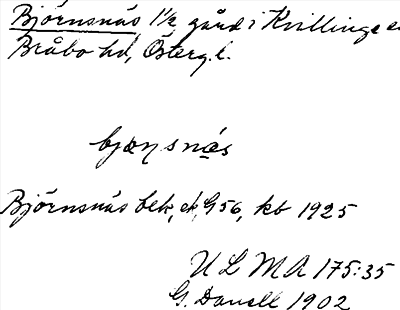 Björnsnäs 1½ gård i Kvillinge
Bråbo hd, Österg.l.
bjœnsnäs
Björnsnäs bek, G 56, kb 1925
ULMA 175:35
G. Danell 1902